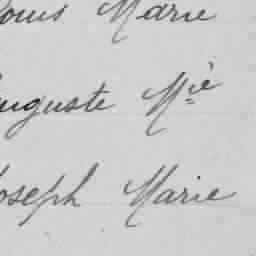 Louis Marie
Auguste Mie
Joseph Marie